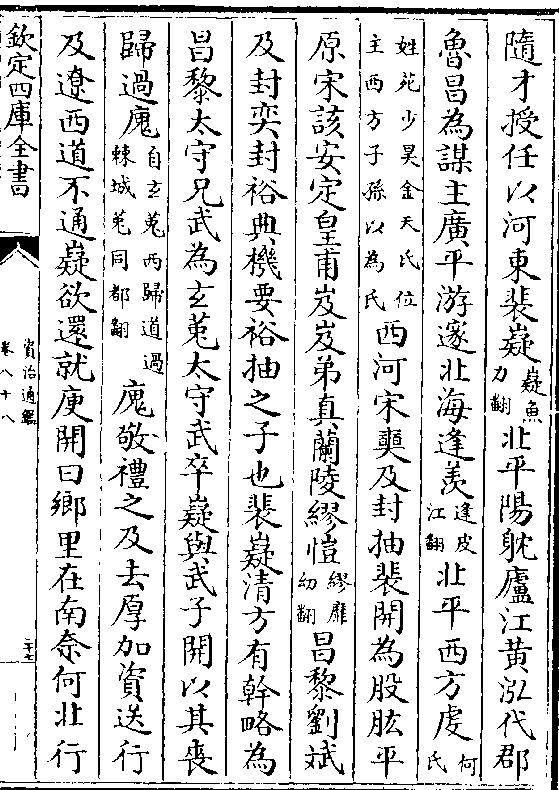 隨才授任以河東裴嶷嶷魚力翻北平陽躭廬江黄泓代郡
魯昌為謀主廣平游邃北海逄羨逄皮江翻北平西方䖍何氏
姓苑少昊金天氏位主西方子孫以為氏西河宋奭及封抽裴開為股肱平
原宋該安定皇甫岌岌弟真蘭陵繆愷繆靡幼翻昌黎劉斌
及封奕封裕典機要裕抽之子也裴嶷清方有幹略為
昌黎太守兄武為玄菟太守武卒嶷與武子開以其喪
歸過廆自玄菟西歸道過棘城菟同都翻廆敬禮之及去厚加資送行
及遼西道不通嶷欲還就廆開曰鄉里在南奈何北行
欽定四庫全書
資治通鑑
卷八十八
二十七